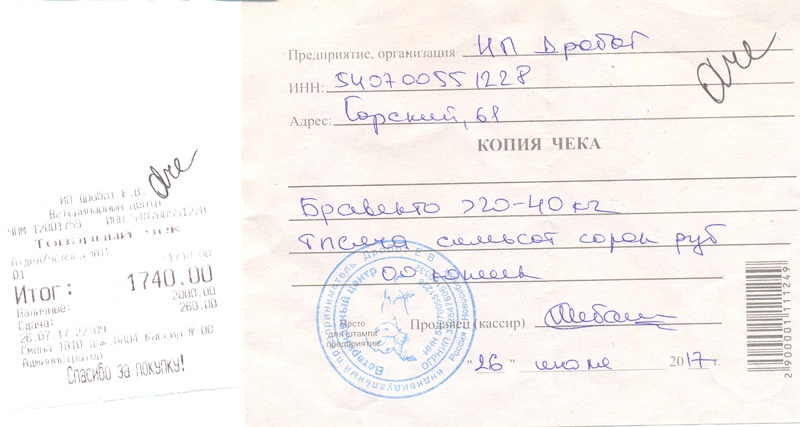 ИП Дробат Е.В.
Ветеринарный центр
ЧПМ 12001755 ИНН
Товарный чек
01
Итог: 1740.00
Наличные: 2000.00
Сдача: 260.00
26.07.17 22:09
Смена 1810 Док.0004 Кассир № 00
Администратор
Спасибо за покупку!
Предприятие, организация ИП Дробат
ИНН: 540700551228
Адрес: Горский, 61
КОПИЯ ЧЕКА
Бравекто >20-40 кг
Тысяча семьсот сорок руб
00 копеек
Индивидуальный предприниматель Дробат Е В
Ветеринарный Центр
Место
для штампа
предприятия
Продавец (кассир)
"26" июля 2017 г.
2 900001 111249